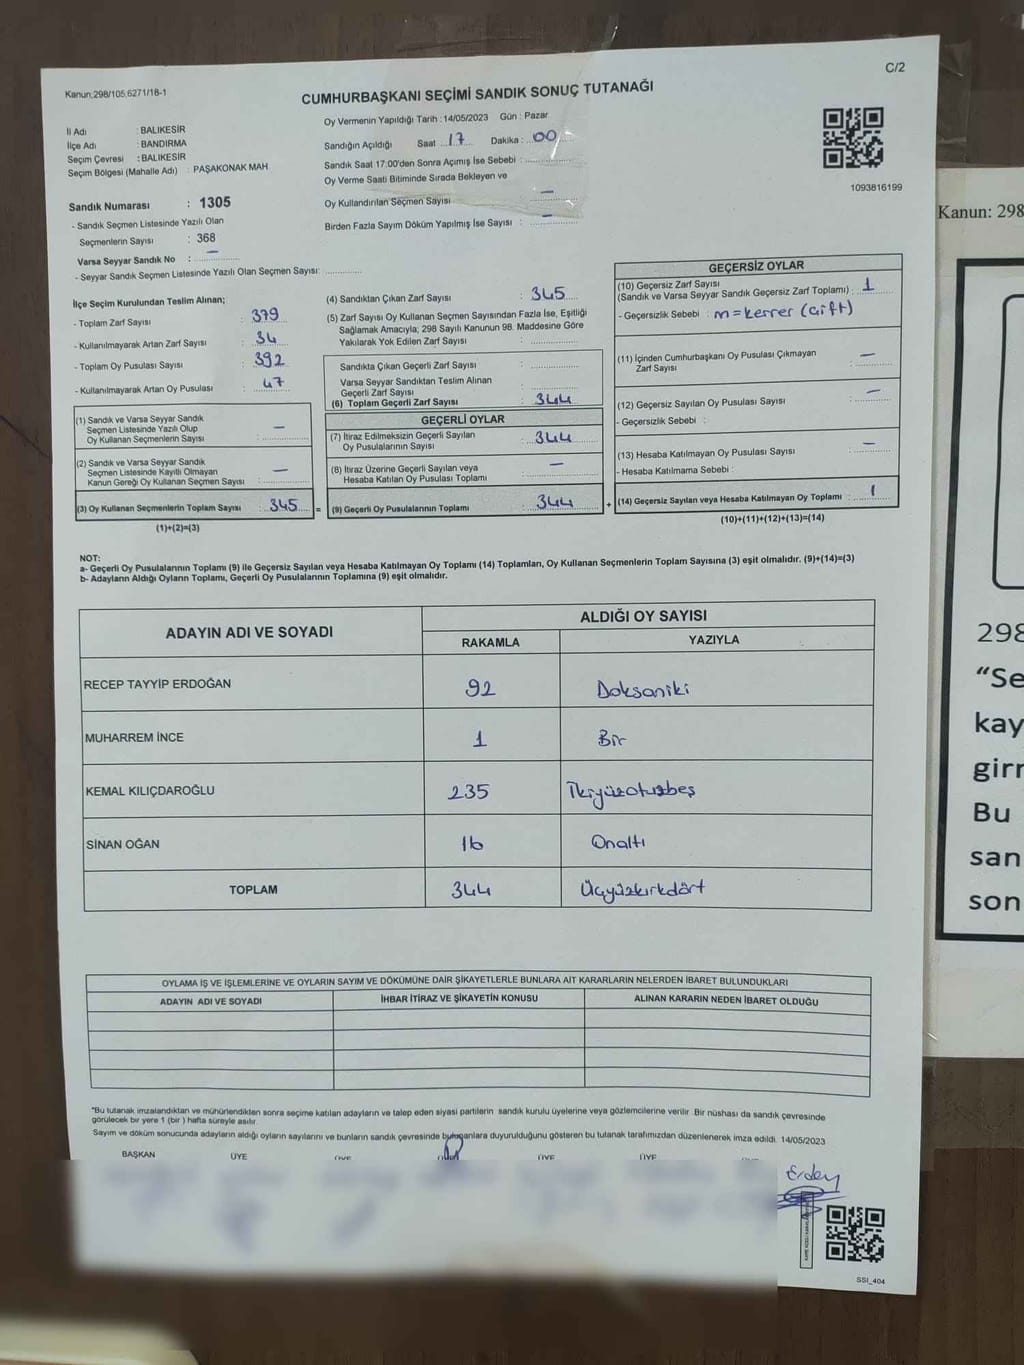 C/2
Kanun;298/105,6271/18-1
CUMHURBAŞKANI SEÇİMİ SANDIK SONUÇ TUTANAĞI
İl Adı : BALIKESİR
İlçe Adı : BANDIRMA
Seçim Çevresi : BALIKESİR
Seçim Bölgesi (Mahalle Adı) : PAŞAKONAK MAH
Oy Vermenin Yapıldığı Tarih : 14/05/2023 Gün : Pazar
Sandığın Açıldığı Saat : 17 Dakika : 00
Sandık Saat 17:00'den Sonra Açımış İse Sebebi :
Oy Verme Saati Bitiminde Sırada Bekleyen ve
Oy Kullandırılan Seçmen Sayısı : —
Birden Fazla Sayım Döküm Yapılmış İse Sayısı : —
1093816199
Sandık Numarası : 1305
- Sandık Seçmen Listesinde Yazılı Olan
Seçmenlerin Sayısı : 368
Varsa Seyyar Sandık No : —
- Seyyar Sandık Seçmen Listesinde Yazılı Olan Seçmen Sayısı:
İlçe Seçim Kurulundan Teslim Alınan;
- Toplam Zarf Sayısı : 379
- Kullanılmayarak Artan Zarf Sayısı : 34
- Toplam Oy Pusulası Sayısı : 392
- Kullanılmayarak Artan Oy Pusulası : 47
(1) Sandık ve Varsa Seyyar Sandık
Seçmen Listesinde Yazılı Olup
Oy Kullanan Seçmenlerin Sayısı : —
(2) Sandık ve Varsa Seyyar Sandık
Seçmen Listesinde Kayıtlı Olmayan
Kanun Gereği Oy Kullanan Seçmen Sayısı : —
(3) Oy Kullanan Seçmenlerin Toplam Sayısı : 345 =
(1)+(2)=(3)
(4) Sandıktan Çıkan Zarf Sayısı : 345
(5) Zarf Sayısı Oy Kullanan Seçmen Sayısından Fazla İse, Eşitliği
Sağlamak Amacıyla; 298 Sayılı Kanunun 98. Maddesine Göre
Yakılarak Yok Edilen Zarf Sayısı :
Sandıkta Çıkan Geçerli Zarf Sayısı :
Varsa Seyyar Sandıktan Teslim Alınan
Geçerli Zarf Sayısı :
(6) Toplam Geçerli Zarf Sayısı : 344
GEÇERLİ OYLAR
(7) İtiraz Edilmeksizin Geçerli Sayılan
Oy Pusulalarının Sayısı : 344
(8) İtiraz Üzerine Geçerli Sayılan veya
Hesaba Katılan Oy Pusulası Toplamı : —
(9) Geçerli Oy Pusulalarının Toplamı : 344 +
GEÇERSİZ OYLAR
(10) Geçersiz Zarf Sayısı
(Sandık ve Varsa Seyyar Sandık Geçersiz Zarf Toplamı) : 1
- Geçersizlik Sebebi : m=kerrer (çift)
(11) İçinden Cumhurbaşkanı Oy Pusulası Çıkmayan
Zarf Sayısı : —
(12) Geçersiz Sayılan Oy Pusulası Sayısı : —
- Geçersizlik Sebebi :
(13) Hesaba Katılmayan Oy Pusulası Sayısı : —
- Hesaba Katılmama Sebebi :
(14) Geçersiz Sayılan veya Hesaba Katılmayan Oy Toplamı : 1
(10)+(11)+(12)+(13)=(14)
NOT:
a- Geçerli Oy Pusulalarının Toplamı (9) ile Geçersiz Sayılan veya Hesaba Katılmayan Oy Toplamı (14) Toplamları, Oy Kullanan Seçmenlerin Toplam Sayısına (3) eşit olmalıdır. (9)+(14)=(3)
b- Adayların Aldığı Oyların Toplamı, Geçerli Oy Pusulalarının Toplamına (9) eşit olmalıdır.
ADAYIN ADI VE SOYADI ALDIĞI OY SAYISI
RAKAMLA YAZIYLA
RECEP TAYYİP ERDOĞAN 92 Doksaniki
MUHARREM İNCE 1 Bir
KEMAL KILIÇDAROĞLU 235 İkiyüzotuzbeş
SİNAN OĞAN 16 Onaltı
TOPLAM 344 Üçyüzkırkdört
OYLAMA İŞ VE İŞLEMLERİNE VE OYLARIN SAYIM VE DÖKÜMÜNE DAİR ŞİKAYETLERLE BUNLARA AİT KARARLARIN NELERDEN İBARET BULUNDUKLARI
ADAYIN ADI VE SOYADI İHBAR İTİRAZ VE ŞİKAYETİN KONUSU ALINAN KARARIN NEDEN İBARET OLDUĞU
"Bu tutanak imzalandıktan ve mühürlendikten sonra seçime katılan adayların ve talep eden siyasi partilerin sandık kurulu üyelerine veya gözlemcilerine verilir. Bir nüshası da sandık çevresinde
görülecek bir yere 1 (bir ) hafta süreyle asılır.
Sayım ve döküm sonucunda adayların aldığı oyların sayılarını ve bunların sandık çevresinde bulunanlara duyurulduğunu gösteren bu tutanak tarafımızdan düzenlenerek imza edildi. 14/05/2023
BAŞKAN ÜYE ÜYE ÜYE ÜYE ÜYE
Erdem
SSI_404
Kanun: 298
298
"Se
kay
girr
Bu
san
son